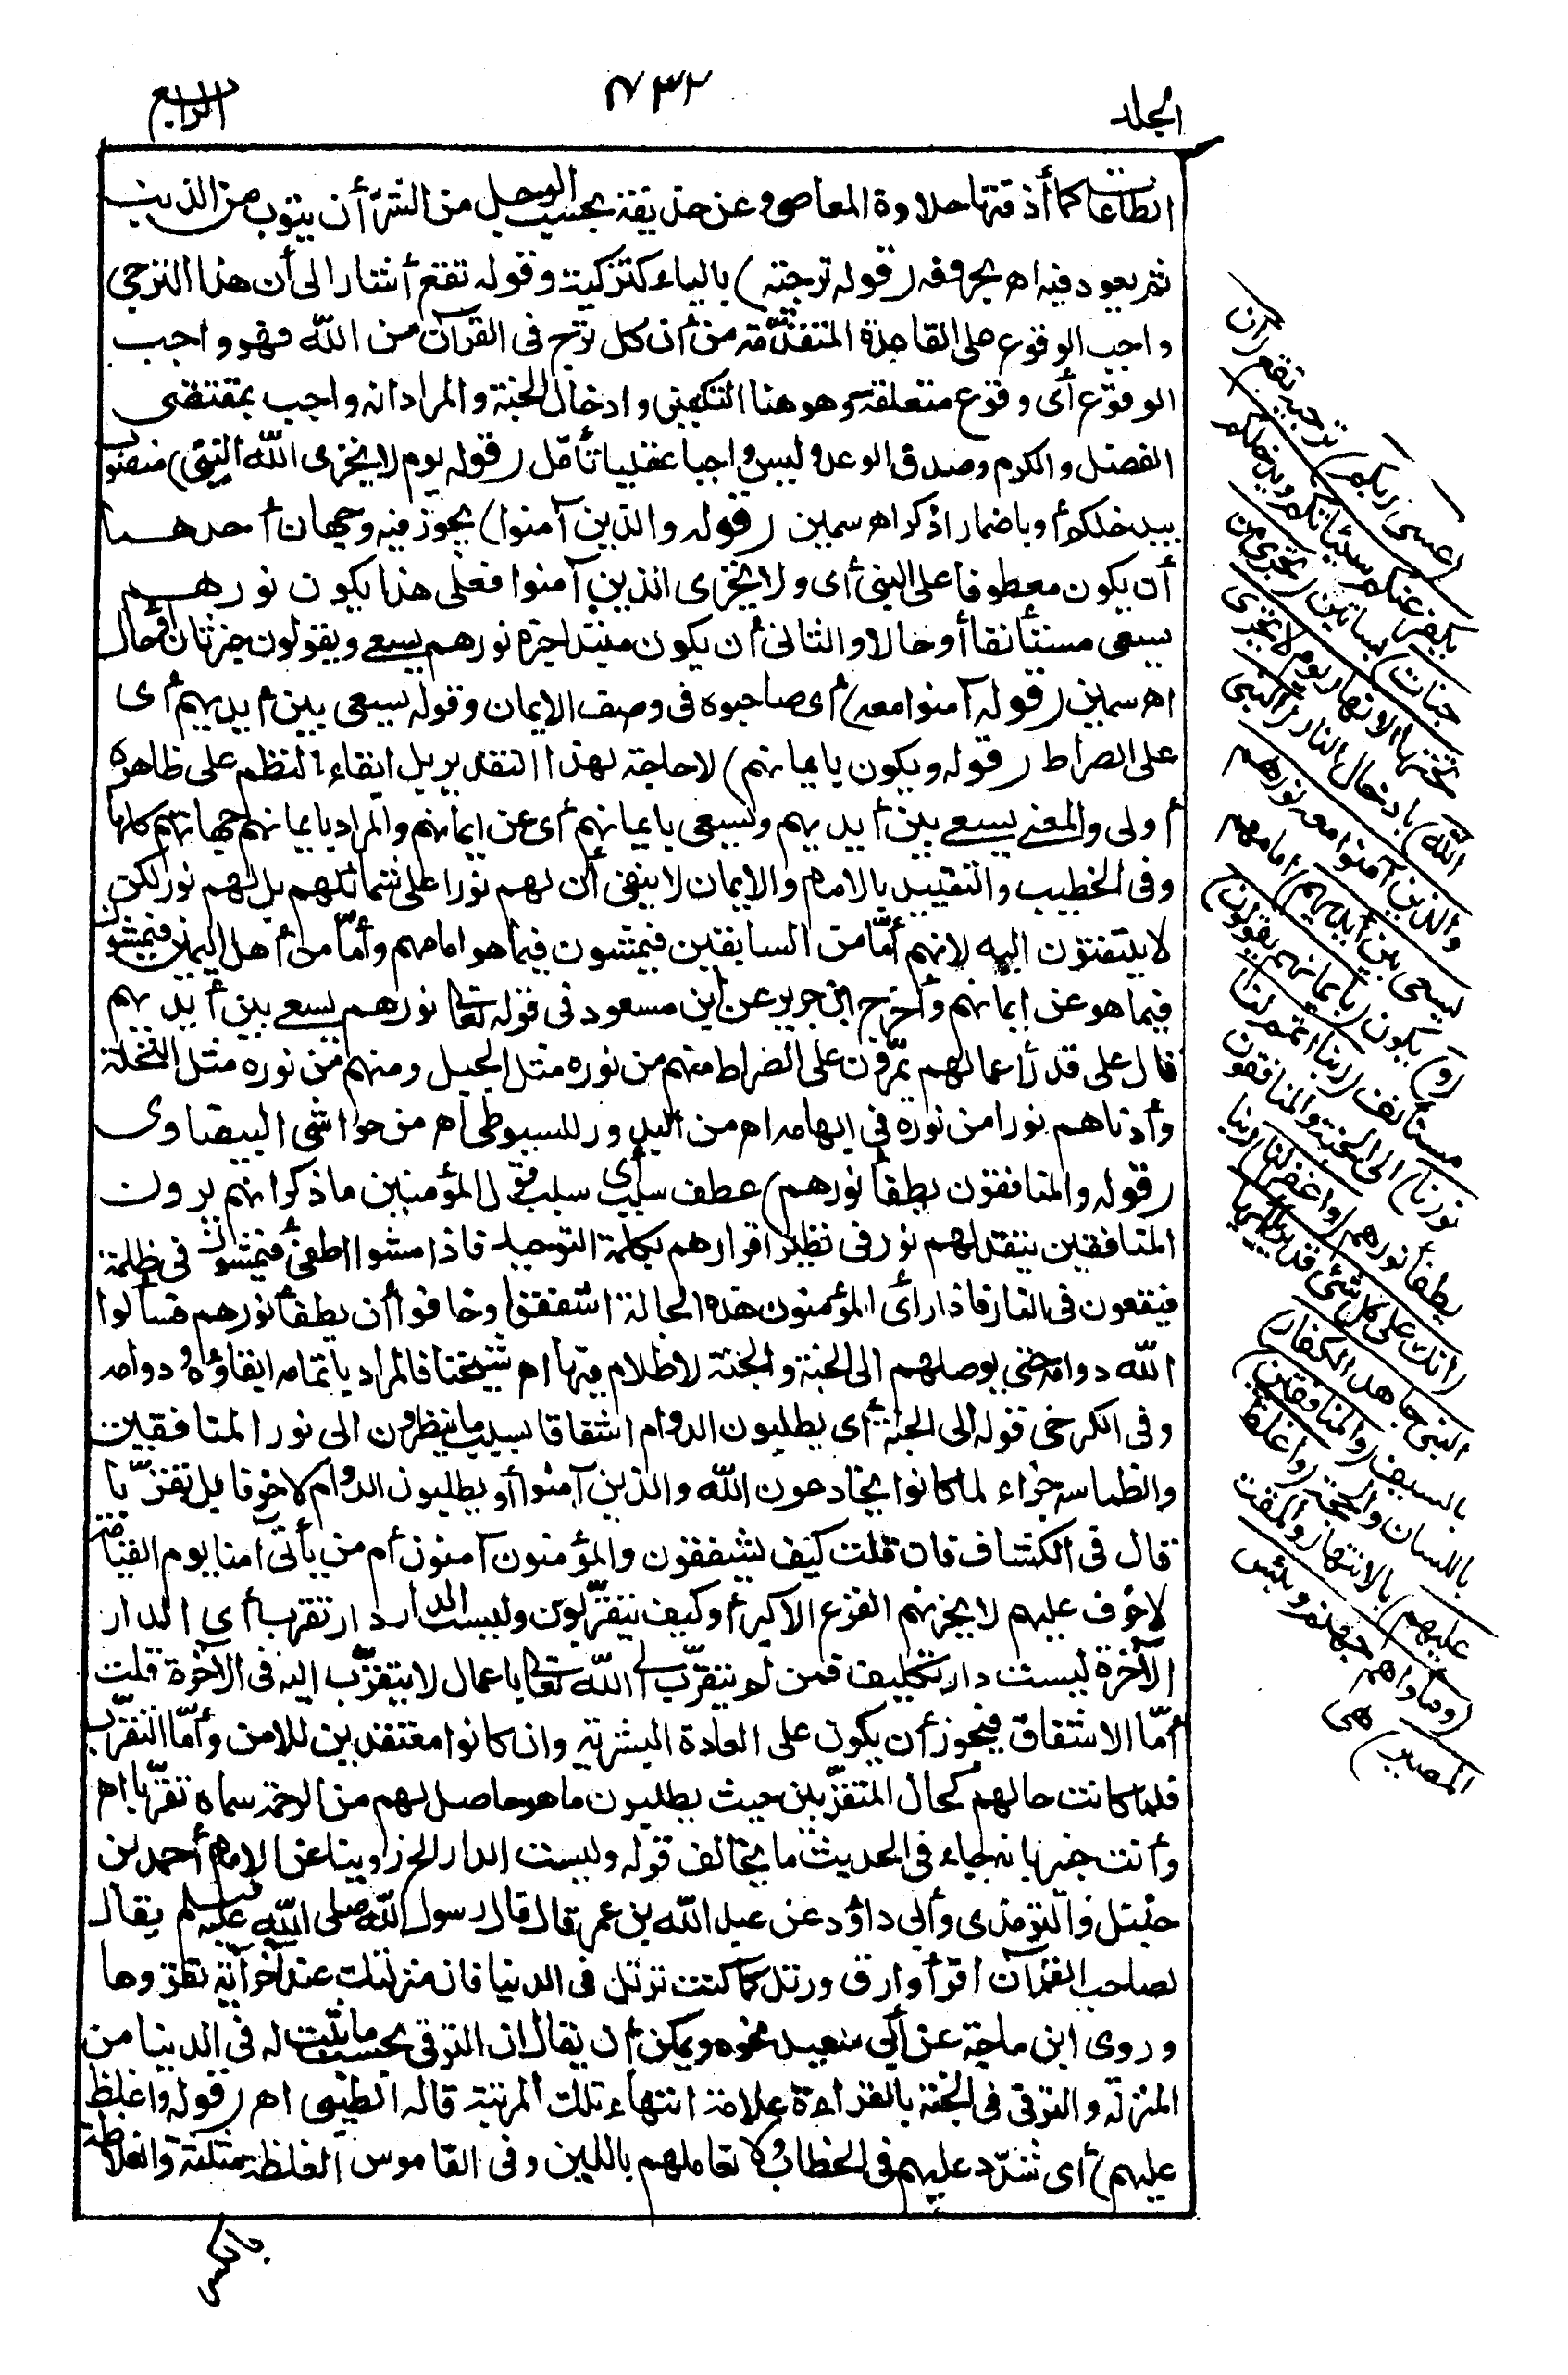 المجلد
٧٣٢
الرابع
الطاعات كما أذقتها حلاوة المعاصى وعن حذيفة بحسب الرجل من الشر أن يتوب من الذنب
ثم يعود فيه اه بحروفه (قوله ترجية) بالياء كتزكية وقوله تقع أشار الى أن هذا الترجى
واجب الوقوع على القاعدة المتقدّمة من أن كل ترج فى القرآن من الله فهو واجب
الوقوع أى وقوع متعلقه وهو هنا التكفير وادخال الجنة والمراد انه واجب بمقتضى
الفضل والكرم وصدق الوعد وليس واجبا عقليا تأمّل (قوله يوم لا يخزى الله النبى) منصوب
بيدخلكم أو باضمار اذكر اه سمين (قوله والذين آمنوا) يجوز فيه وجهان أحدهما
أن يكون معطوفا على النبى أى ولا يخزى الذين آمنوا فعلى هذا يكون نورهم
يسعى مستأنفا أو حالا والثانى أن يكون مبتدا خبره نورهم يسعى ويقولون خبر ثان أو حال
اه سمين (قوله آمنوا معه) أى صاحبوه فى وصف الايمان وقوله يسعى بين أيديهم أى
على الصراط (قوله ويكون بايمانهم) لا حاجة لهذا التقدير بل ابقاء النظم على ظاهره
أولى والمعنى يسعى بين أيديهم ويسعى بايمانهم أى عن ايمانهم والمراد بايمانهم جهاتهم كلها
وفى الخطيب والتقييد بالامام والايمان لا ينفى أن لهم نورا على شمائلهم بل لهم نور لكن
لا يلتفتون اليه لانهم أمّا من السابقين فيمشون فيما هو امامهم وأمّا من أهل اليمين فيمشون
فيما هو عن ايمانهم وأخرج ابن جرير عن ابن مسعود فى قوله تعالى نورهم يسعى بين أيديهم
قال على قدر أعمالهم يمرّون على الصراط منهم من نوره مثل الجبل ومنهم من نوره مثل النخلة
وأدناهم نورا من نوره فى ابهامه اه من البدور للسيوطى اه من حواشى البيضاوى
(قوله والمنافقون يطفأ نورهم) عطف سلب أى سلب قول المؤمنين ما ذكر انهم يرون
المنافقين يتقد لهم نور فى نظير اقرارهم بكلمة التوحيد فاذا مشوا اطفئ فيمشون فى ظلمة
فيقعون فى النار فاذا رأى المؤمنون هذه الحالة اشفقوا وخافوا أن يطفأ نورهم فسألوا
الله دوامه حتى يوصلهم الى الجنة والجنة لا ظلام فيها اه شيخنا فالمراد باتمامه ابقاؤه ودوامه
وفى الكرخى قوله الى الجنة أى يطلبون الدوام اشفاقا بسبب ما ينظرون الى نور المنافقين
وانطماسه جزاء لما كانوا يخادعون الله والذين آمنوا أو يطلبون الدوام لا خوفا بل تقرّبا
قال فى الكشاف فان قلت كيف يشفقون والمؤمنون آمنون أم من يأتى آمنا يوم القيامة
لا خوف عليهم لا يحزنهم الفزع الاكبر أو كيف يتقرّبون وليست الدار دار تقرب أى الدار
الآخرة ليست دار تكليف فمن لم يتقرّب الى الله تعالى باعمال لا يتقرّب اليه فى الآخرة قلت
أمّا الاشفاق فيجوز أن يكون على العادة البشرية وان كانوا معتقدين للامن وأمّا التقرّب
فلما كانت حالهم كحال المتقرّبين حيث يطلبون ما هو حاصل لهم من الرحمة سماه تقرّبا اه
وأنت خبير بانه جاء فى الحديث ما يخالف قوله وليست الدار الخ روينا عن الامام أحمد بن
حنبل والترمذى وأبى داود عن عبد الله بن عمر قال قال رسول الله صلى الله عليه وسلم يقال
لصاحب القرآن اقرأ وارق ورتل كما كنت ترتل فى الدنيا فان منزلتك عند آخر آية تقرؤها
وروى ابن ماجة عن أبى سعيد نحوه ويمكن أن يقال ان الترقى بحسب ما ثبت له فى الدنيا من
المنزلة والترقى فى الجنة بالقراءة علامة انتهاء تلك المرتبة قاله الطيبى اه (قوله واغلظ
عليهم) أى شدّد عليهم فى الخطاب ولا تعاملهم باللين وفى القاموس الغلظة مثلثة والغلاظة
(عسى ربكم) ترجية تقع (أن
يكفر عنكم سيئاتكم ويدخلكم
جنات) بساتين (تجرى من
تحتها الانهار يوم لا يخزى
الله) بادخال النار (النبى
والذين آمنوا معه نورهم
يسعى بين أيديهم) امامهم
(و) يكون (بايمانهم يقولون)
مستأنف (ربنا اتمم لنا
نورنا) الى الجنة والمنافقون
يطفأ نورهم (واغفر لنا) ربنا
(انك على كل شئ قدير يا أيها
النبى جاهد الكفار)
بالسيف (والمنافقين)
باللسان والحجة (واغلظ
عليهم) بالانتهار والمقت
(ومأواهم جهنم وبئس
المصير) هى